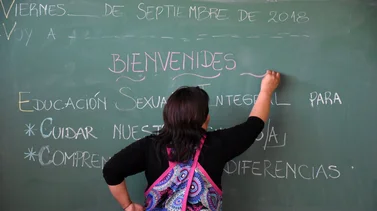 VIERNES___ DE SEPTIEMBRE DE 2018
VOY A
BIENVENIDES
EDUCACIÓN SEXUAL INTEGRAL PARA
* CUIDAR
* DIFERENCIAS.